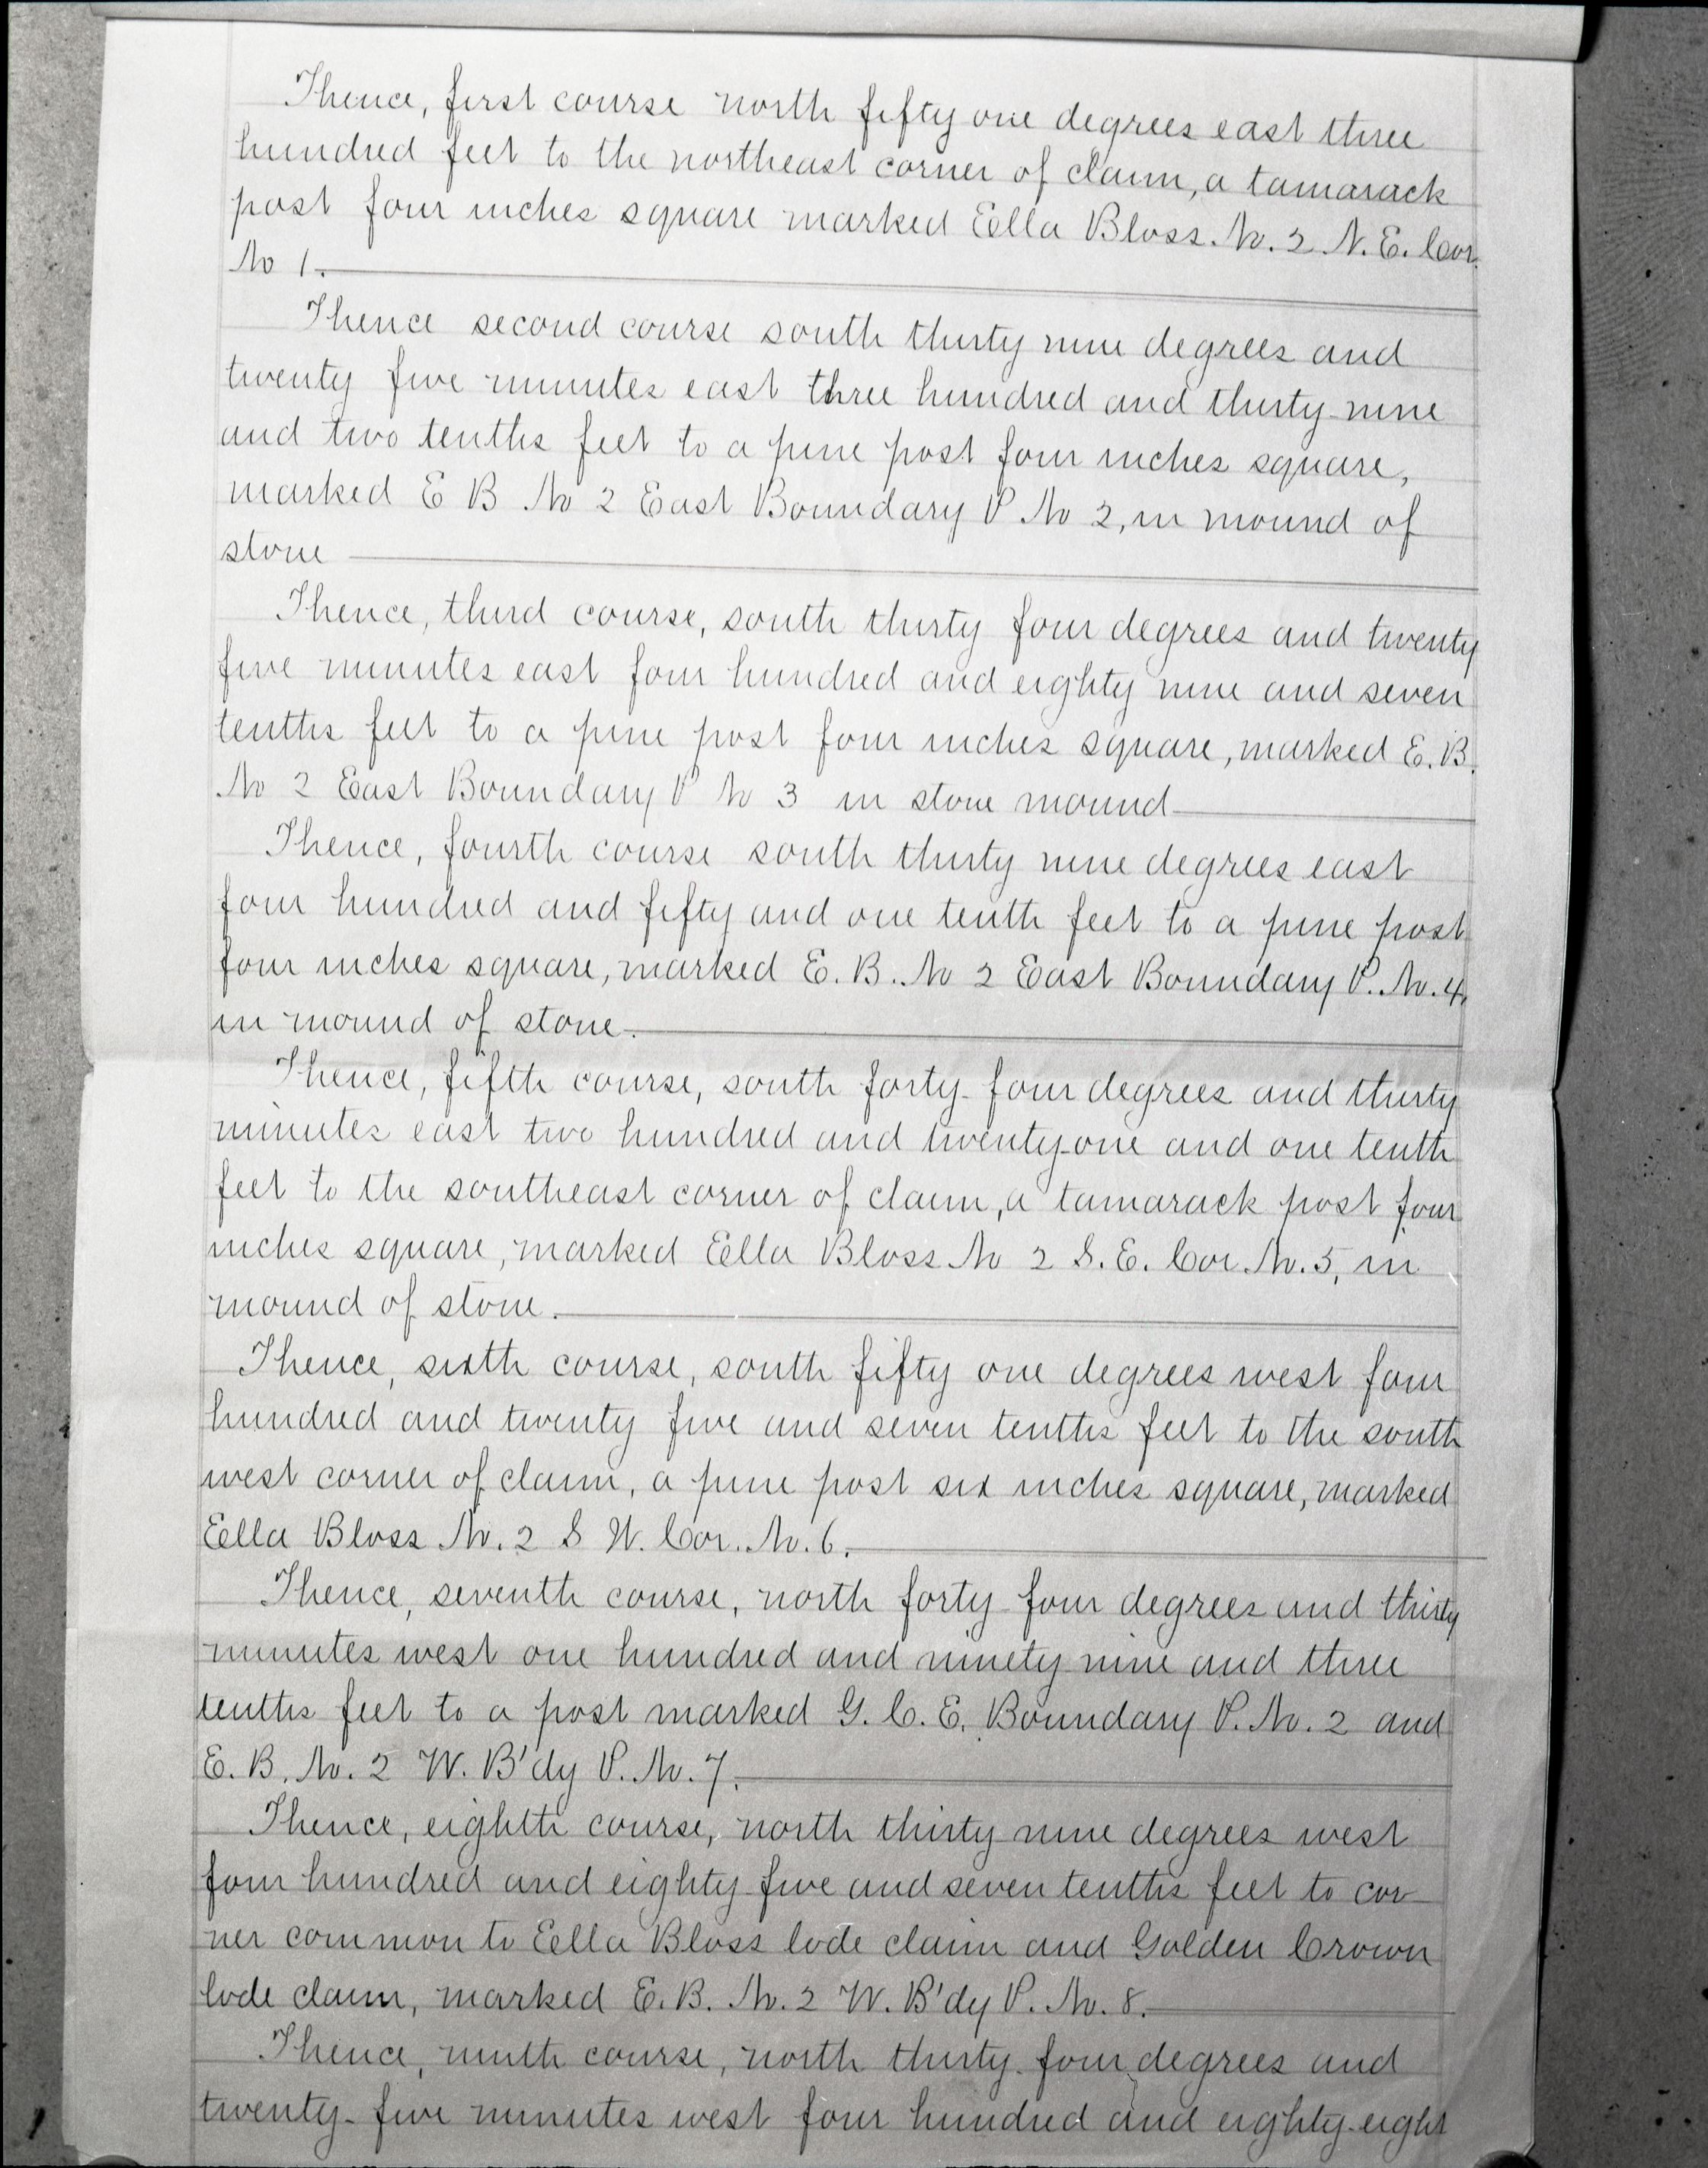 Thence, first course north fifty one degrees east three
hundred feet to the northeast corner of claim, a tamarack
post four inches square marked Ella Bloss No. 2 N.E. Cor.
No 1.
Thence second course south thirty nine degrees and
twenty five minutes east three hundred and thirty-nine
and two tenths feet to a pine post four inches square,
marked E B No 2 East Boundary P No 2, in mound of
stone
Thence, third course, south thirty four degrees and twenty
five minutes east four hundred and eighty nine and seven
tenths feet to a pine post four inches square, marked E.B.
No 2 East Boundary P No 3 in stone mound
Thence, fourth course south thirty nine degrees east
four hundred and fifty and one tenth feet to a pine post
four inches square, marked E.B. No 2 East Boundary P. No. 4,
in mound of stone.
Thence, fifth course, south forty-four degrees and thirty
minutes east two hundred and twenty-one and one tenth
feet to the southeast corner of claim, a tamarack post four
inches square, marked Ella Bloss No 2 S.E. Cor. No. 5, in
mound of stone.
Thence, sixth course, south fifty one degrees west four
hundred and twenty five and seven tenths feet to the south
west corner of claim, a pine post six inches square, marked
Ella Bloss No. 2 S W. Cor. No. 6.
Thence, seventh course, north forty-four degrees and thirty
minutes west one hundred and ninety-nine and three
tenths feet to a post marked G.C.E. Boundary P. No. 2 and
E.B. No. 2 W. B'dy P. No. 7.
Thence, eighth course, north thirty-nine degrees west
four hundred and eighty-five and seven tenths feet to cor-
ner common to Ella Bloss lode claim and Golden Crown
lode claim, marked E.B. No. 2 W. B'dy P. No. 8.
Thence, ninth course, north thirty-four degrees and
twenty-five minutes west four hundred and eighty-eight